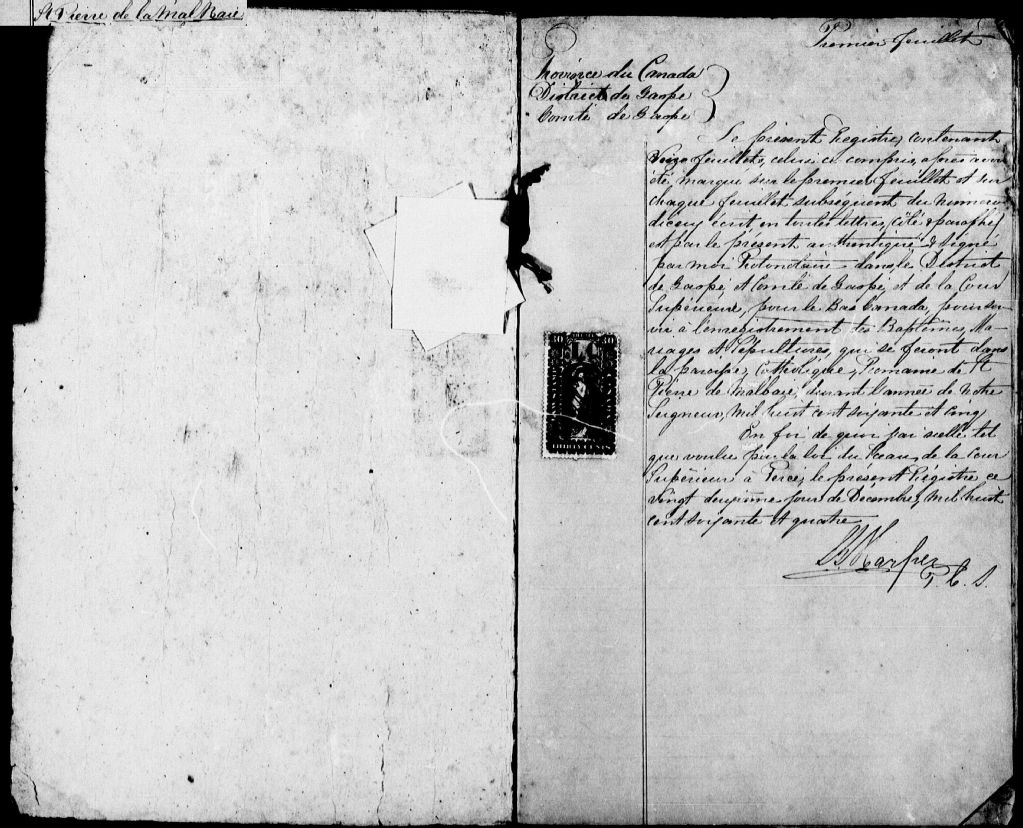 St Pierre de la Mal Baie
Premier feuillet
Province du Canada
District de Gaspé
Comté de Gaspé
Le présent Registre, contenant
feuillets, celui ci compris, après avoir
été marqué sur le premier feuillet et sur
chaque feuillet subséquent du numéro
d'iceux écrit en toutes lettres, côté & paraphé
et par le présent authentiqué & signé
par moi Protonotaire dans le District
de Gaspé, et Comté de Gaspé, et de la Cour
Supérieure, pour le Bas Canada, pour ser
vir à l'enregistrement des Baptêmes, Ma-
riages et Sépultures, qui se feront dans
la paroisse, Catholique, Romaine de St
Pierre de Malbaie, durant l'année de notre
Seigneur, mil huit cent soixante et cinq
En foi de quoi j'ai scellé tel
que voulu par la loi du Sceau de la Cour
Supérieur à Percé, le présent Régistre ce
Vingt deuxième jour de Decembre, mil huit
cent soixante et quatre
30 30
THIRTY CENTS
P. C. S.